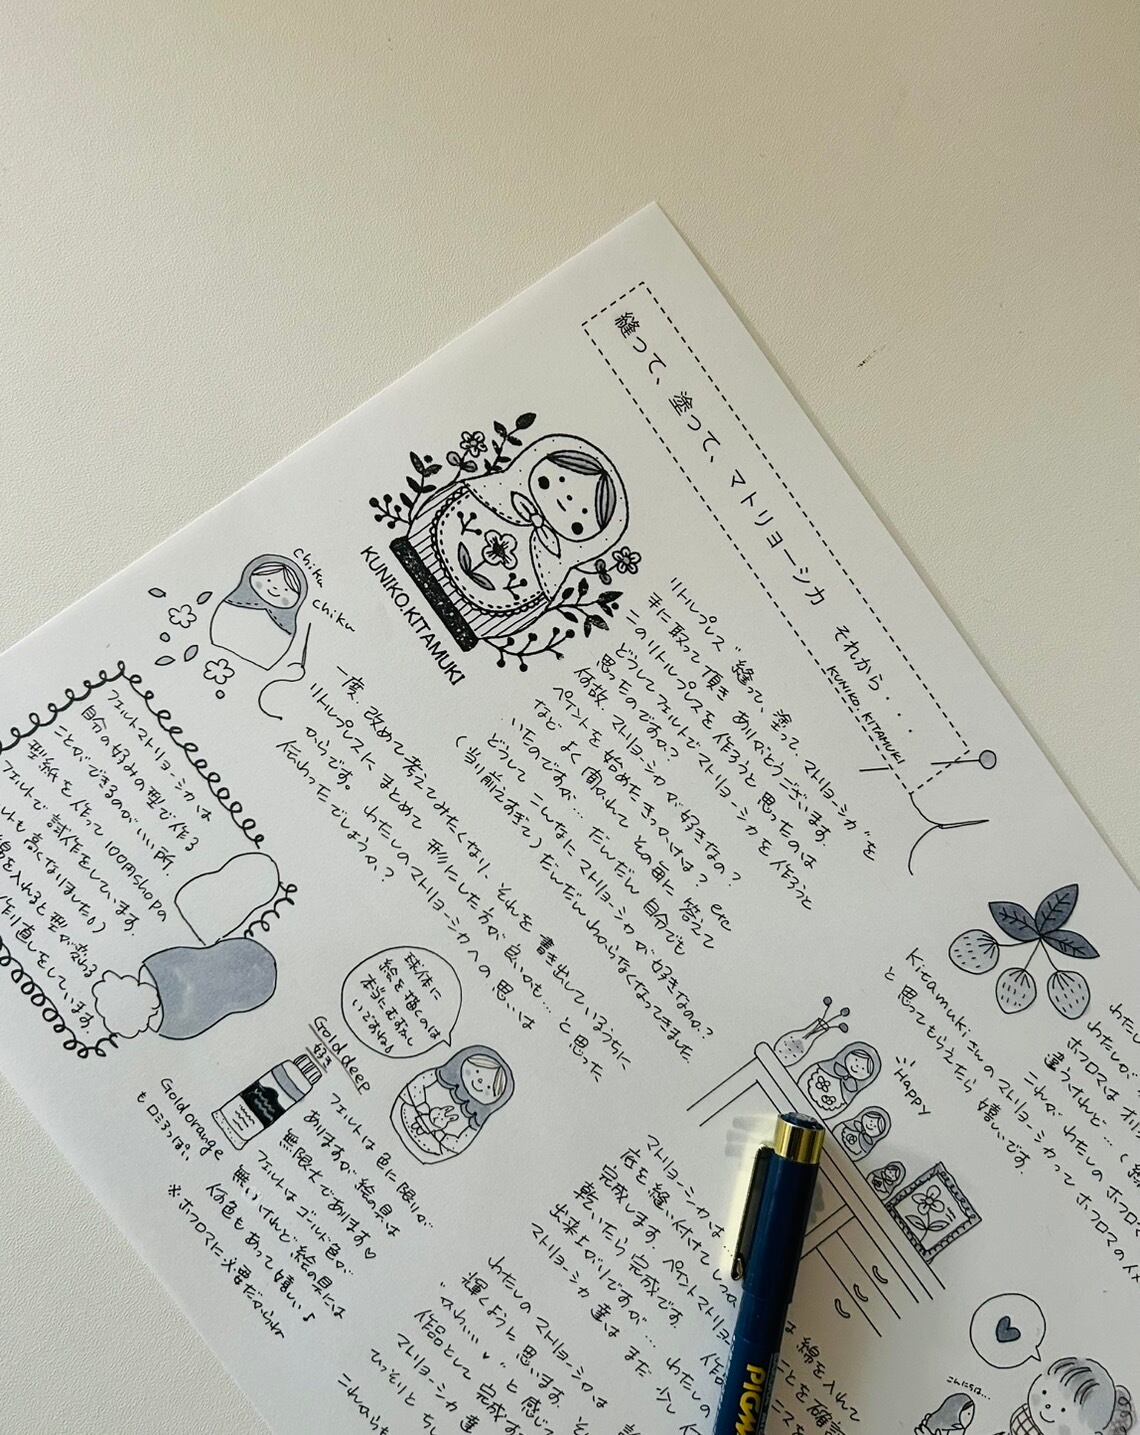 縫って、塗って、マトリョーシカ
それから・・・
KUNIKO.KITAMUKI
KUNIKO.KITAMUKI
リトルプレス〝縫って、塗って、マトリョーシカ〟を
手に取って頂き ありがとうございます。
このリトルプレスを 作ろうと 思ったのは
どうしてフェルトで マトリョーシカを 作ろうと
思ったのですか?
何故、マトリョーシカが 好きなの?
ペイントを 始めたきっかけは? etc
など よく 聞かれて その毎に 答えて
いたのですが… だんだん 自分でも
どうして こんなに マトリョーシカが 好きなのか?
(当り前すぎて) だんだん わからなくなってきました。
一度、改めて 考えてみたくなり、それを 書き出しているうちに
リトルプレスに まとめて 形にした方が 良いのかも… と 思った
からです。 わたしの マトリョーシカへの 思いは
伝わったでしょうか?
chiku
chiku
フェルトマトリョーシカは
自分の好みの型で作る
ことができるのが いい所。
型紙を作って 100円shopの
フェルトで 試作をしています。
高くなりましたが)
を入れると 型が 変わる
作り直しをしています。
球体に
絵を描くのは
本当にむずかし
いですよね
Gold deep
好き
Gold orange
も ロシアっぽい
フェルトは 色に 限りが
ありますが 絵の具は
無限大であります♡
フェルトは ゴールド色が
無いけれど 絵の具には
何色も あって 嬉しい♪
※ホフロマに 必要だからね
Happy
Kitamukiさんの マトリョーシカって
と 思ってもらえたら 嬉しいです。
わたし
わたしが
ホフロマは
違うけれど…
これが わたしの ホフロマ
マトリョーシカは
底を 縫い付けて
完成します。 ペイントマトリョ
乾いたら 完成です。
出来上がりですが…
マトリョーシカ 達は まだ
わたしの マトリョーシカは
輝くように 思います。
〝かわいい♥〟 と 感じ
作品として 完成
マトリョーシカ 達
ひっそりと
これからも
綿を 入れて
ことを
こんにちは…
PIGM